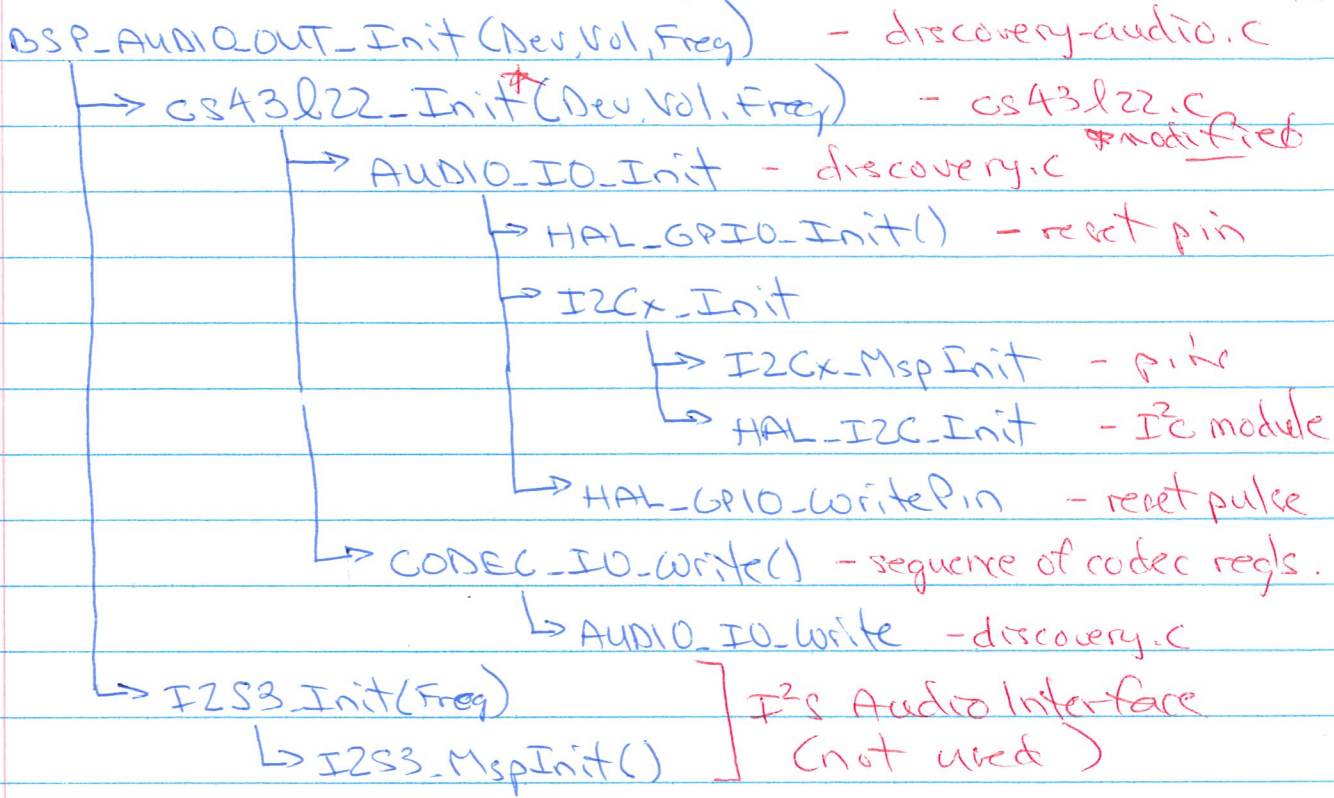 BSP_AUDIO_OUT_Init(Dev,Vol,Freq) - discovery-audio.c
cs43l22_Init*(Dev,Vol,Freq) - cs43l22.c
*modified
AUDIO_IO_Init - discovery.c
HAL_GPIO_Init() - reset pin
I2Cx_Init
I2Cx_MspInit - pins
HAL_I2C_Init - I²C module
HAL_GPIO_WritePin - reset pulse
CODEC_IO_Write() - sequence of codec regs.
AUDIO_IO_Write - discovery.c
I2S3_Init(Freq) ] I²S Audio Interface
I2S3_MspInit() (not used)